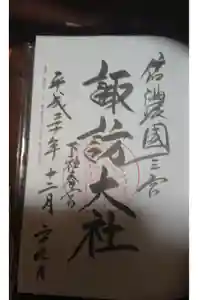 信濃國三宮
諏訪大社
下社秋宮
平成三十年十二月